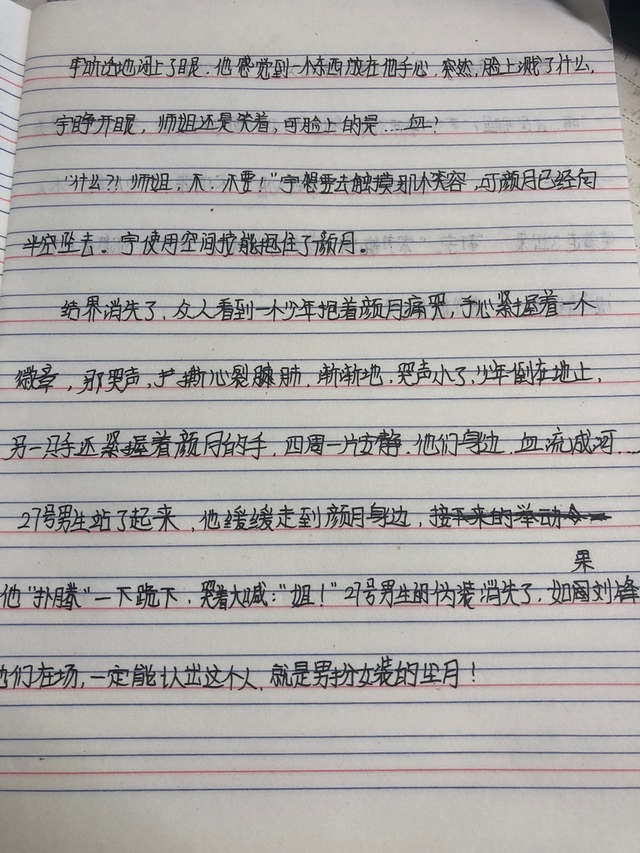 宇听话地闭上了眼,他感觉到一个东西放在他手心,突然,脸上溅了什么,
宇睁开眼,师姐还是笑着,可脸上的是……血?
“什么?!师姐,不,不要!”宇想要去触摸那个笑容,可颜月已经向
半空坠去。宇使用空间技能抱住了颜月。
结界消失了,众人看到一个少年抱着颜月痛哭,手心紧握着一个
徽章,那哭声,撕心裂肺,渐渐地,哭声小了,少年倒在地上,
另一只手还紧握着颜月的手,四周一片安静,他们身边,血流成河……
27号男生站了起来,他缓缓走到颜月身边,接下来的举动令
果
他“扑腾”一下跪下,哭着大喊:“姐!”27号男生的伪装消失了,如刘锋
他们在场,一定能认出这个人,就是男扮女装的月!